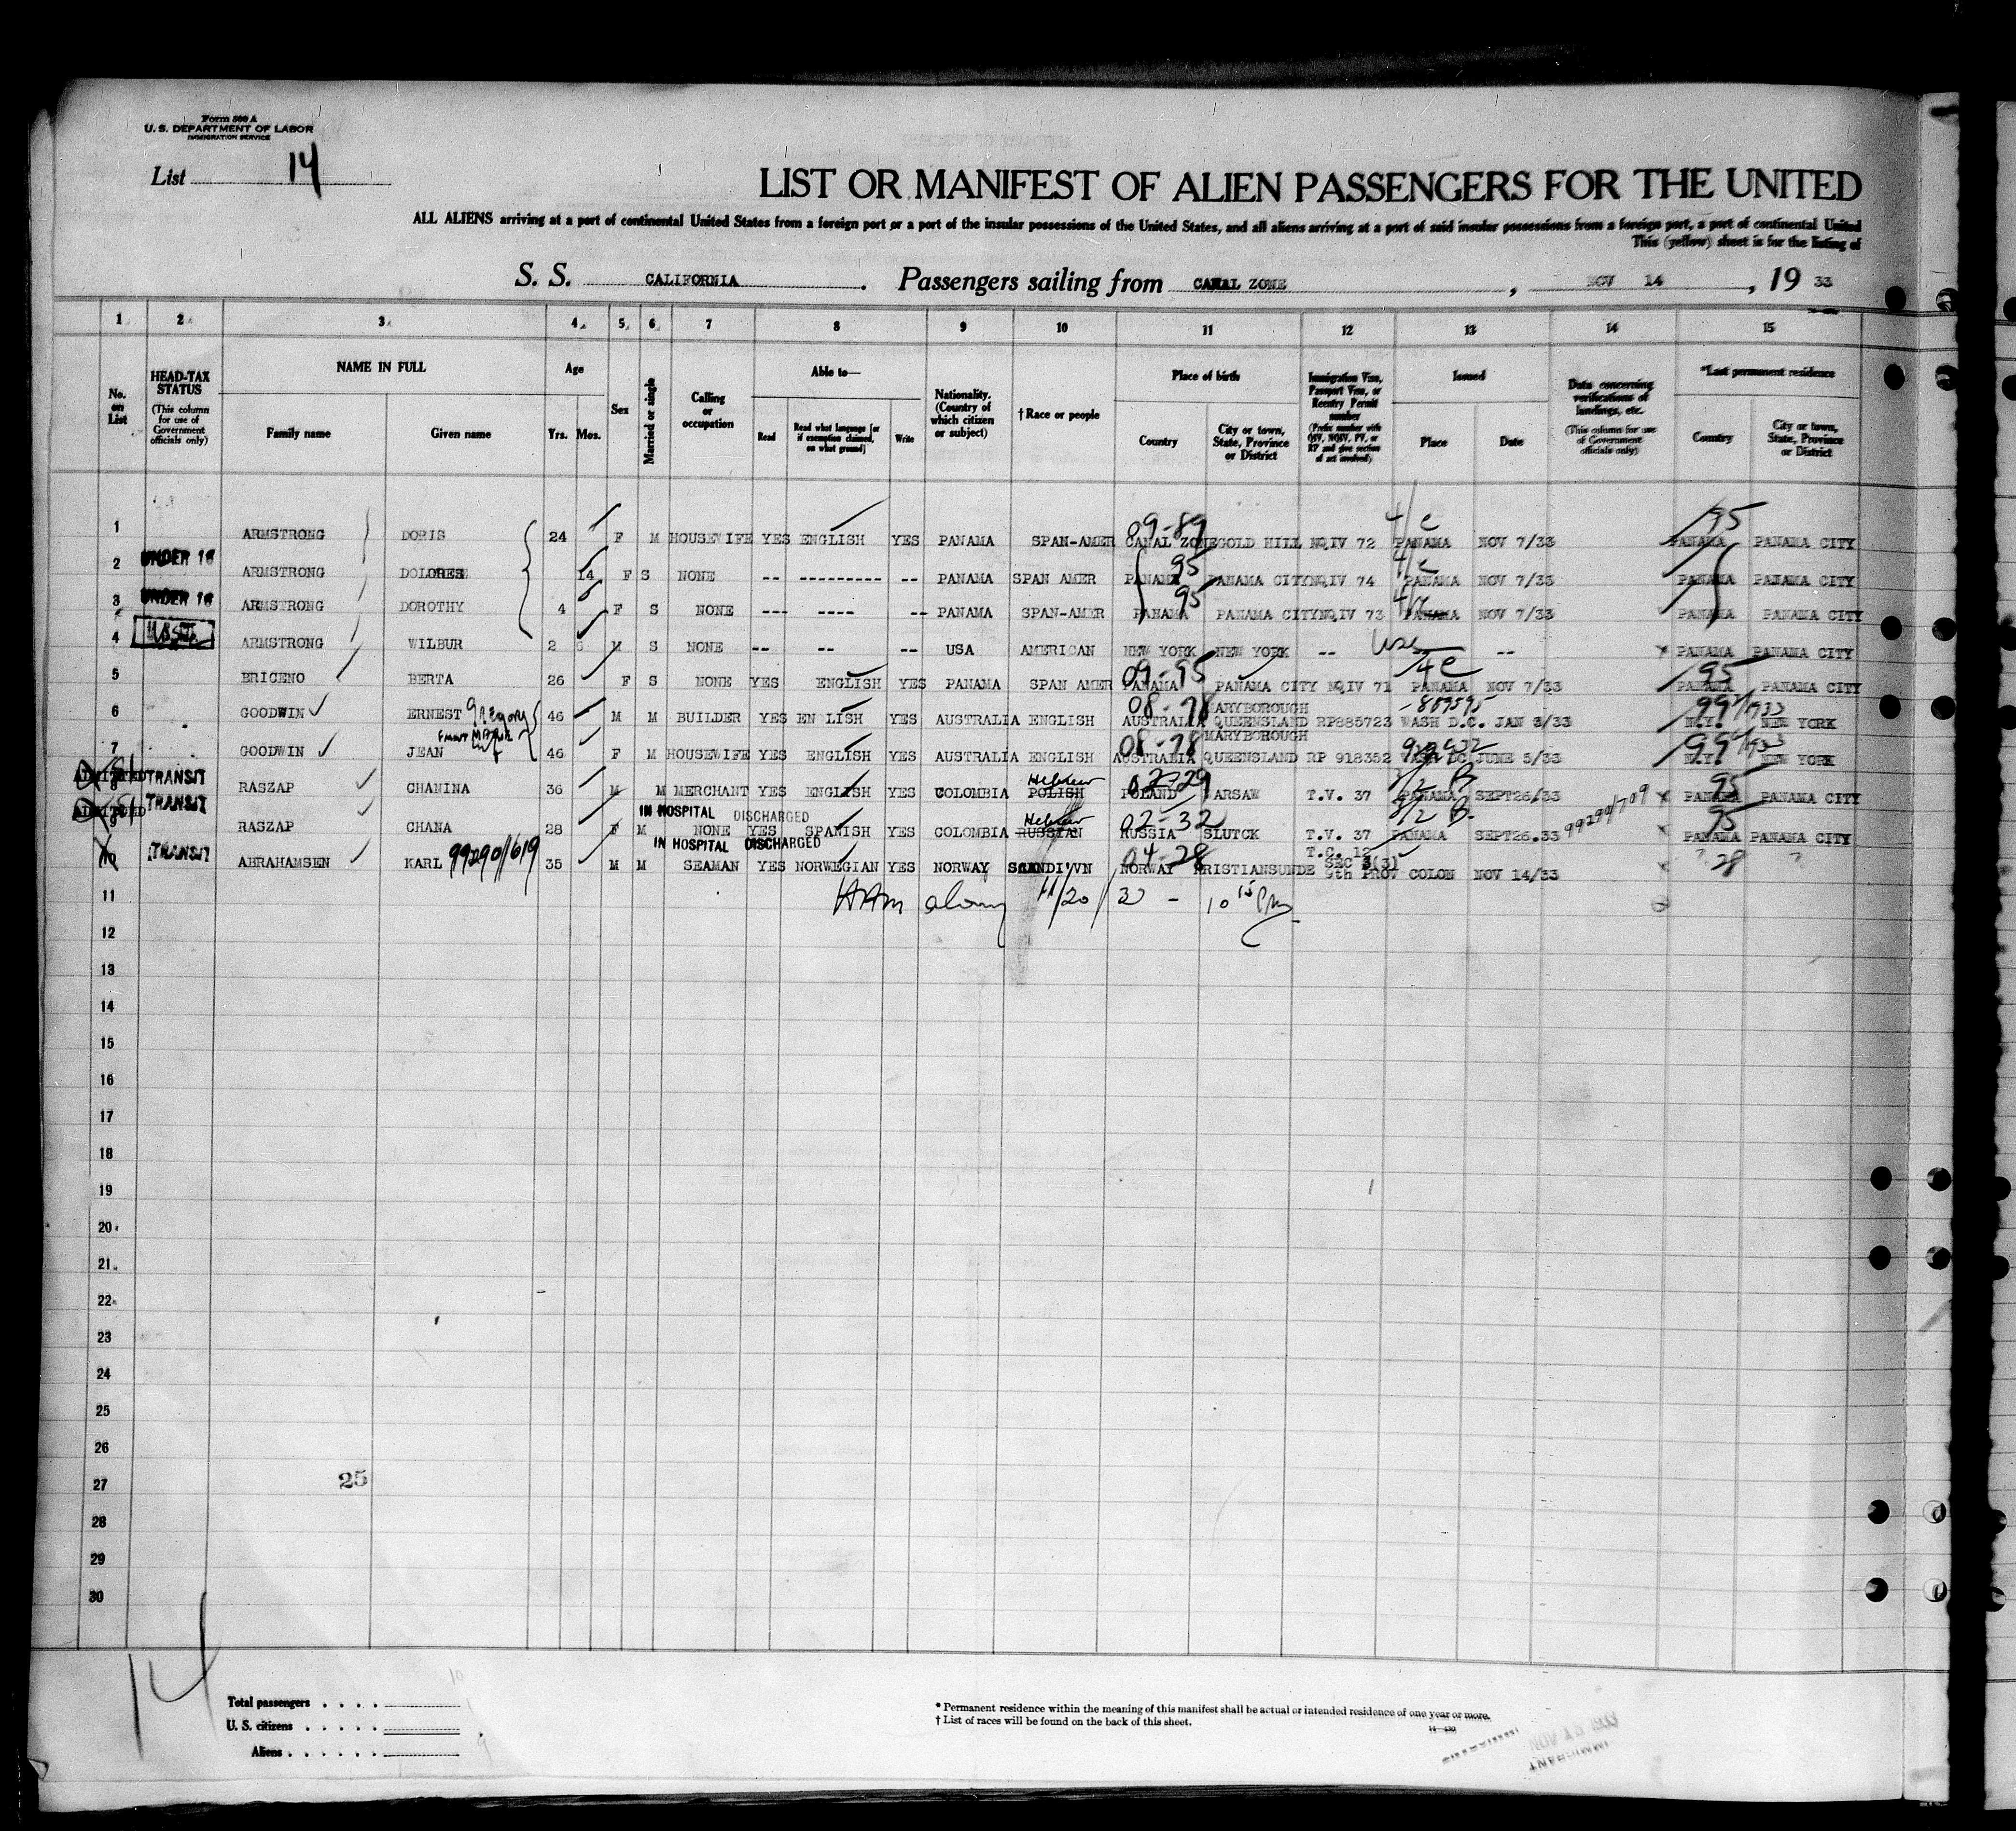 Form 500 A
U. S. DEPARTMENT OF LABOR
IMMIGRATION SERVICE
List 14
LIST OR MANIFEST OF ALIEN PASSENGERS FOR THE UNITED
ALL ALIENS arriving at a port of continental United States from a foreign port or a port of the insular possessions of the United States, and all aliens arriving at a port of said insular possessions from a foreign port, a port of continental United
This (yellow) sheet is for the listing of
S. S. CALIFORNIA. Passengers sailing from CANAL ZONE, NOV 14, 19 33
1 2 3 4 5 6 7 8 9 10 11 12 13 14 15
No. on List
HEAD-TAX STATUS
(This column for use of Government officials only)
NAME IN FULL
Family name Given name
Age
Yrs. Mos.
Sex
Married or single
Calling or occupation
Able to—
Read
Read what language [or if exemption claimed, on what ground]
Write
Nationality. (Country of which citizen or subject)
† Race or people
Place of birth
Country
City or town, State, Province or District
Immigration Visa, Passport Visa, or Reentry Permit number
(Prefix number with QIV, NQIV, PV, or RP and give section of act involved)
Issued
Place Date
Data concerning verifications of landings, etc.
(This column for use of Government officials only)
*Last permanent residence
Country
City or town, State, Province or District
09-89 4/c 95
1 ARMSTRONG DORIS 24 F M HOUSEWIFE YES ENGLISH YES PANAMA SPAN-AMER CANAL ZONE GOLD HILL NQIV 72 PANAMA NOV 7/33 PANAMA PANAMA CITY
UNDER 16 95 4/c
2 ARMSTRONG DOLORES 14 F S NONE -- --------- -- PANAMA SPAN AMER PANAMA PANAMA CITY NQIV 74 PANAMA NOV 7/33 PANAMA PANAMA CITY
UNDER 16 95
3 ARMSTRONG DOROTHY 4 F S NONE --- ---- -- PANAMA SPAN-AMER PANAMA PANAMA CITY NQIV 73 PANAMA NOV 7/33 PANAMA PANAMA CITY
4 ARMSTRONG WILBUR 2 6 M S NONE -- -- -- USA AMERICAN NEW YORK NEW YORK -- USC -- PANAMA PANAMA CITY
09-95 4c 95
5 BRICENO BERTA 26 F S NONE YES ENGLISH YES PANAMA SPAN AMER PANAMA PANAMA CITY NQIV 71 PANAMA NOV 7/33 PANAMA PANAMA CITY
Gregory 08-78 MARYBOROUGH 99
6 GOODWIN ERNEST 46 M M BUILDER YES ENGLISH YES AUSTRALIA ENGLISH AUSTRALIA QUEENSLAND RP885723 WASH D.C. JAN 3/33 N.Y. NEW YORK
08-78 MARYBOROUGH 99
7 GOODWIN JEAN 46 F M HOUSEWIFE YES ENGLISH YES AUSTRALIA ENGLISH AUSTRALIA QUEENSLAND RP 918352 WASH DC JUNE 5/33 N.Y. NEW YORK
ADMITTED TRANSIT Hebrew 95
8 RASZAP CHANINA 36 M M MERCHANT YES ENGLISH YES COLOMBIA POLISH POLAND WARSAW T.V. 37 PANAMA SEPT26/33 PANAMA PANAMA CITY
ADMITTED TRANSIT IN HOSPITAL DISCHARGED Hebrew 02-32 95 99290/709
9 RASZAP CHANA 28 F M NONE YES SPANISH YES COLOMBIA RUSSIAN RUSSIA SLUTCK T.V. 37 PANAMA SEPT26.33 PANAMA PANAMA CITY
TRANSIT IN HOSPITAL DISCHARGED 04-28 T.C. 12
10 ABRAHAMSEN KARL 99290/1619 35 M M SEAMAN YES NORWEGIAN YES NORWAY SCANDI'VN NORWAY KRISTIANSUNDE SEC 3(3) 9th PROV COLON NOV 14/33 ? 28 ?
11 11/20/33 - 10 15 Pm
12
13
14
15
16
17
18
19
20
21
22
23
24
25
26
27 25
28
29
30
14
Total passengers . . . . 10
U. S. citizens . . . . . 1
Aliens . . . . . . 9
* Permanent residence within the meaning of this manifest shall be actual or intended residence of one year or more.
† List of races will be found on the back of this sheet.
14—430
IMMIGRANT